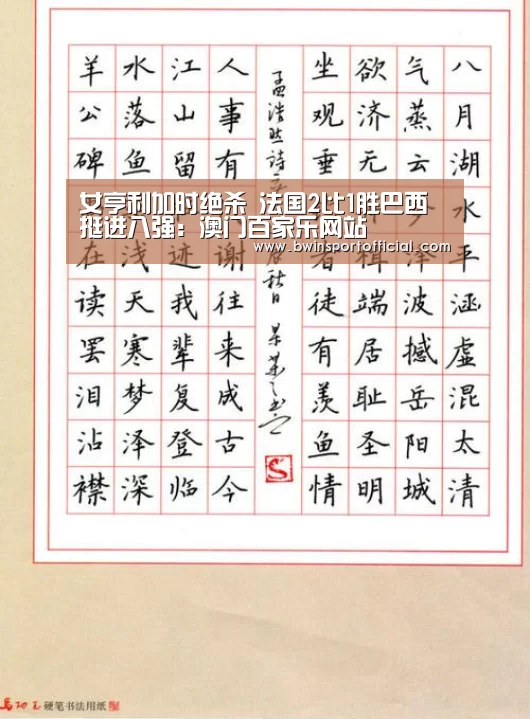 八月湖水平涵虚混太清
气蒸云泽波撼岳阳城
欲济无楫端居耻圣明
坐观垂者徒有羡鱼情
孟浩然詩
秋日
人事有谢往来成古今
江山留迹我辈复登临
水落鱼浅天寒梦泽深
羊公碑在读罢泪沾襟
女亨利加时绝杀 法国2比1胜巴西
挺进八强：澳门百家乐网站
www.bwinsportofficial.com
硬笔书法用纸